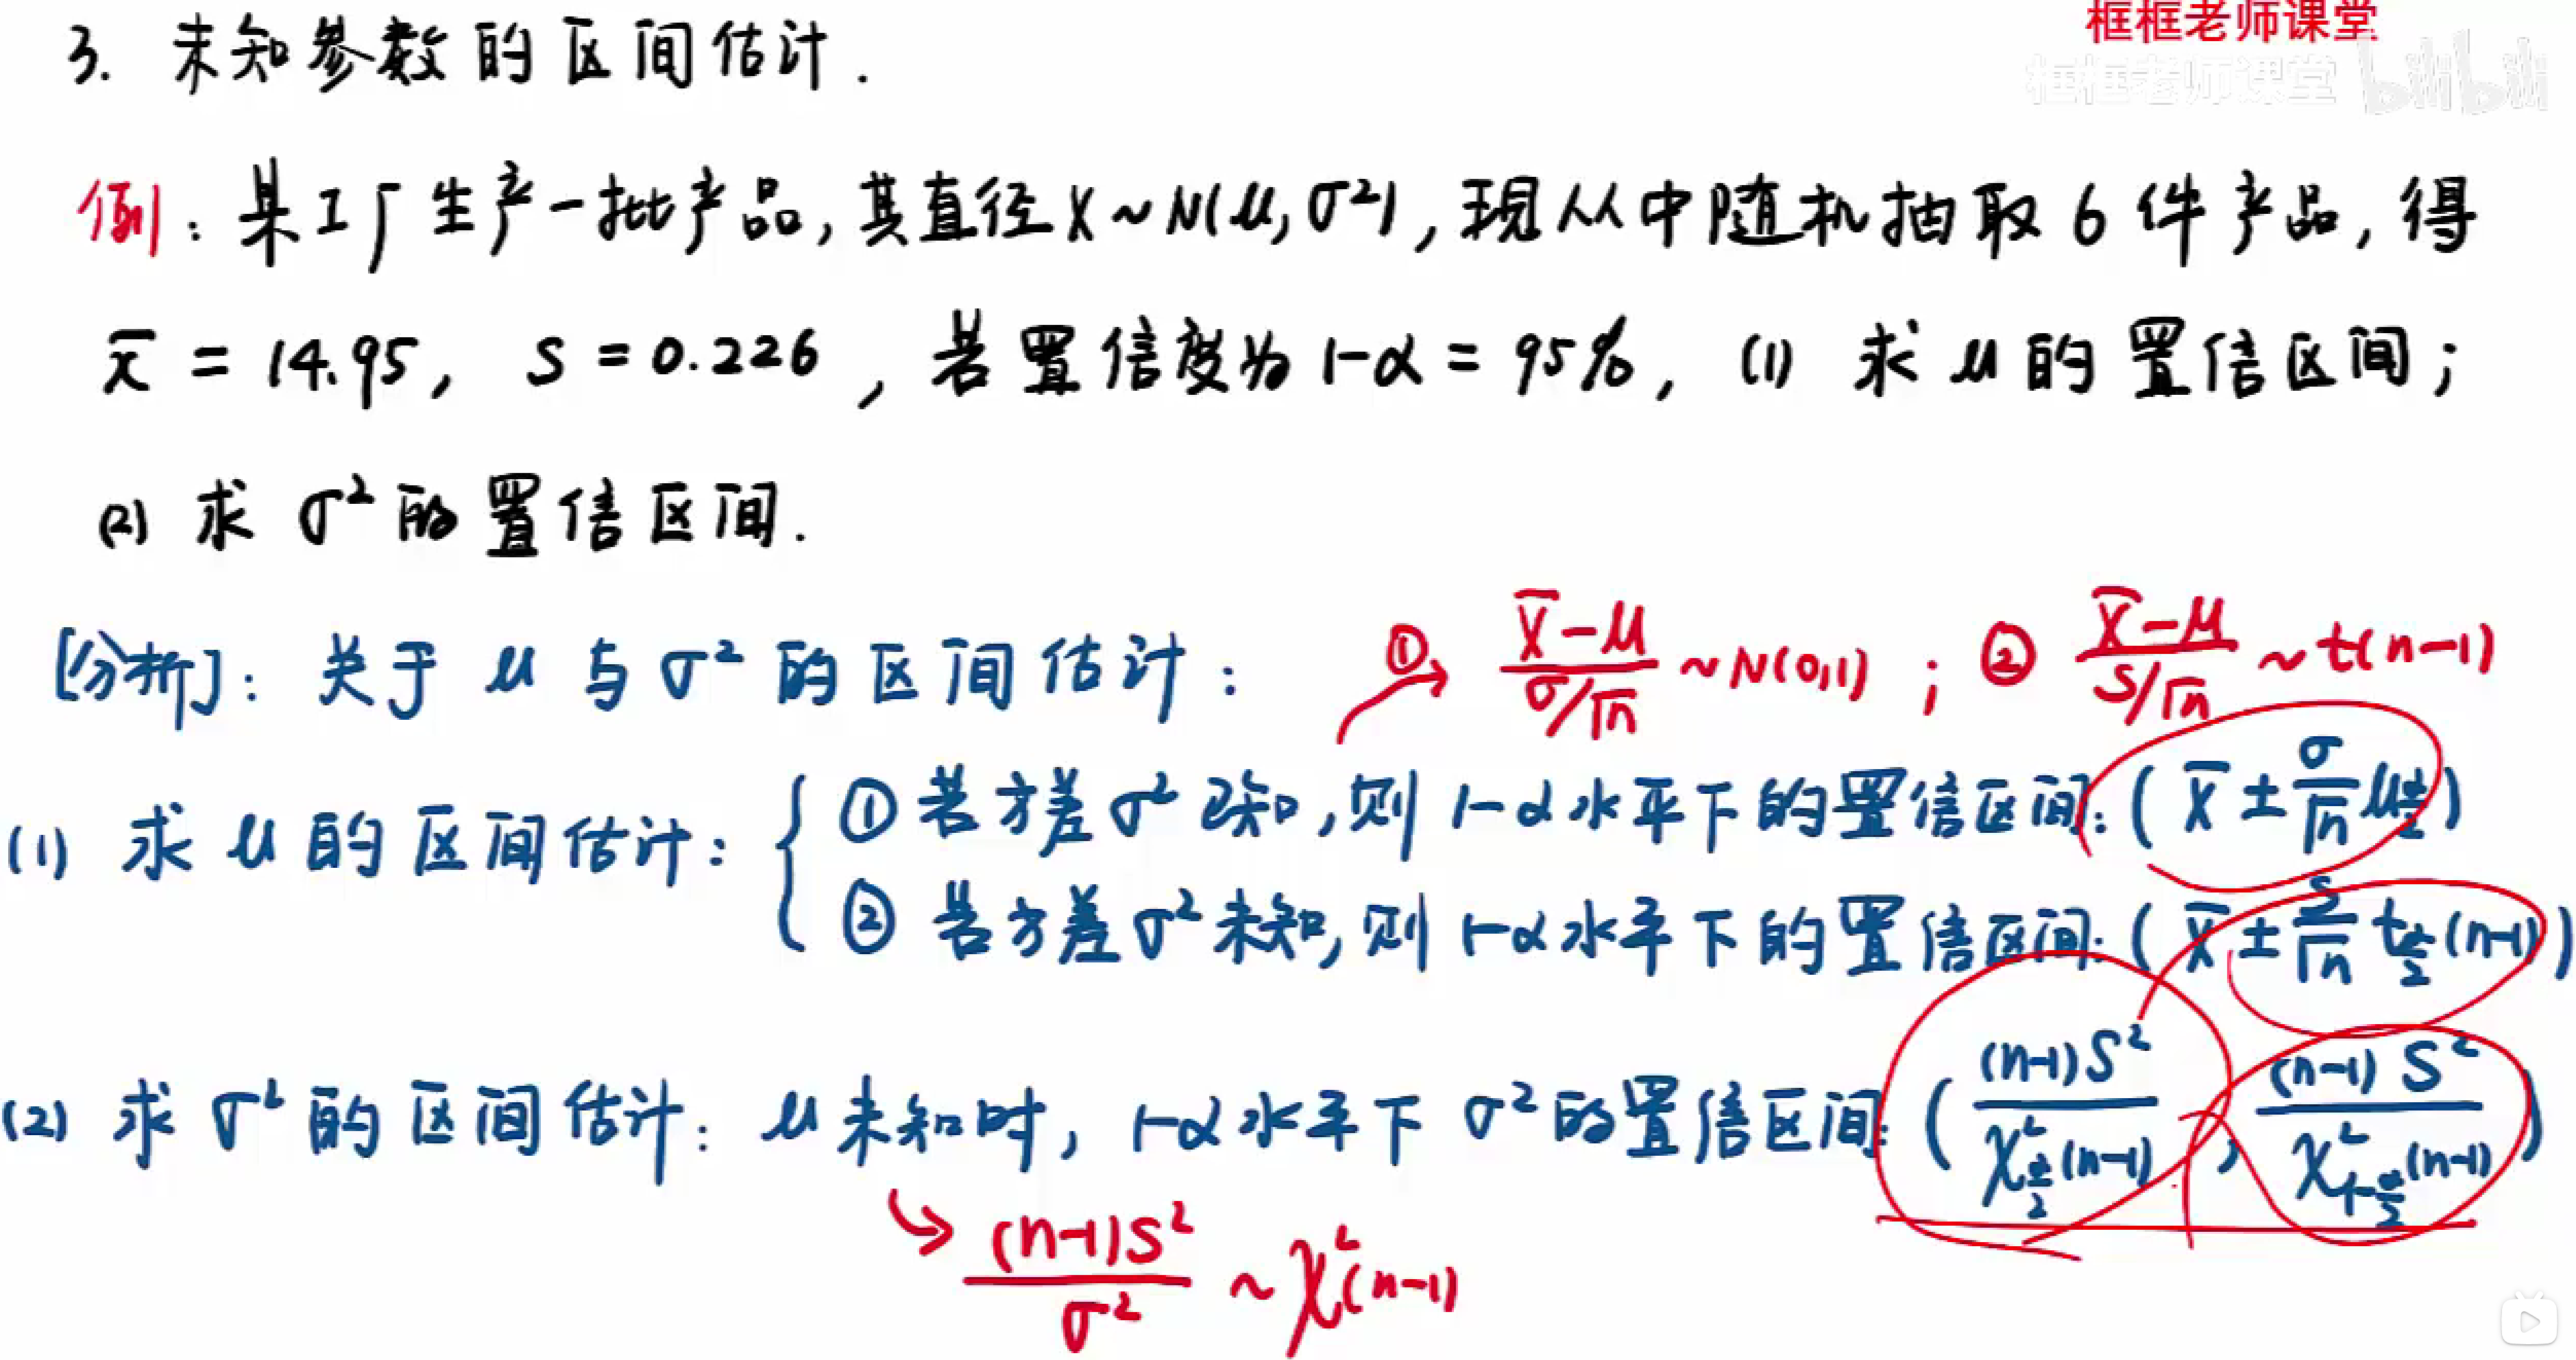 框框老师课堂
框框老师课堂 bilibili
3. 未知参数的区间估计.
例: 某工厂生产一批产品, 其直径 X ~ N(μ, σ²), 现从中随机抽取 6 件产品, 得
x̄ = 14.95, S = 0.226, 若置信度为 1-α = 95%, (1) 求 μ 的置信区间;
(2) 求 σ² 的置信区间.
[分析]: 关于 μ 与 σ² 的区间估计: ① (X̄-μ)/(σ/√n) ~ N(0,1) ; ② (X̄-μ)/(S/√n) ~ t(n-1)
(1) 求 μ 的区间估计: { ① 若方差 σ² 已知, 则 1-α 水平下的置信区间: ( X̄ ± σ/√n μ_{α/2} )
② 若方差 σ² 未知, 则 1-α 水平下的置信区间: ( X̄ ± S/√n t_{α/2}(n-1) )
(2) 求 σ² 的区间估计: μ 未知时, 1-α 水平下 σ² 的置信区间: ( (n-1)S²/χ²_{α/2}(n-1) , (n-1)S²/χ²_{1-α/2}(n-1) )
(n-1)S²/σ² ~ χ²(n-1)